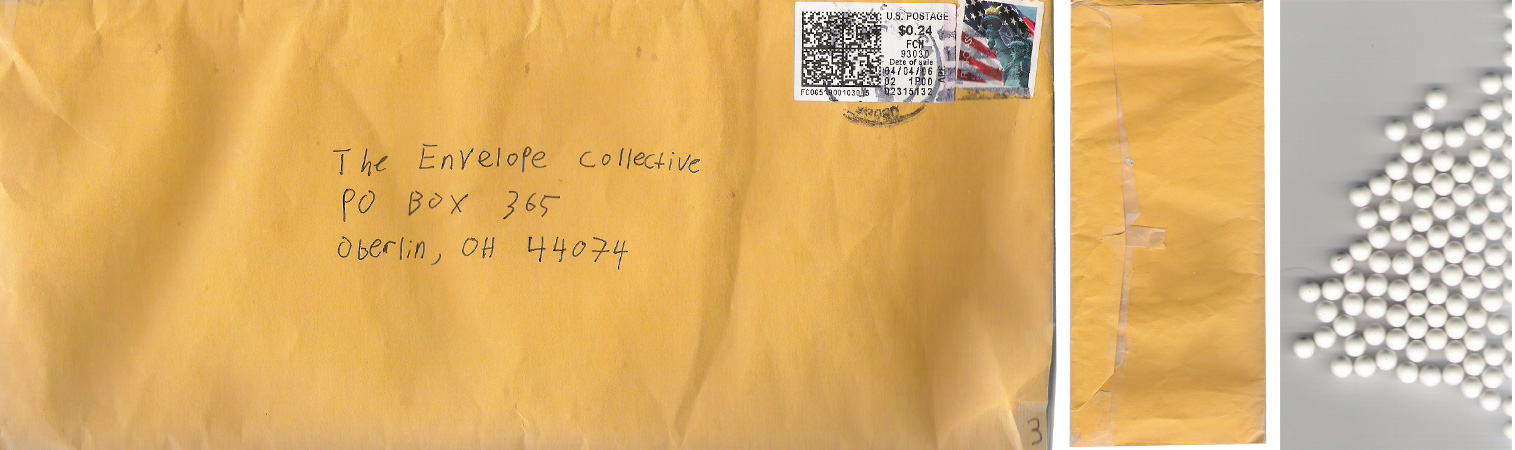 U.S. POSTAGE
$0.24
FCM
93030
Date of sale
04/04/06
02 1P00
02315132
The Envelope Collective
PO BOX 365
Oberlin, OH 44074
3